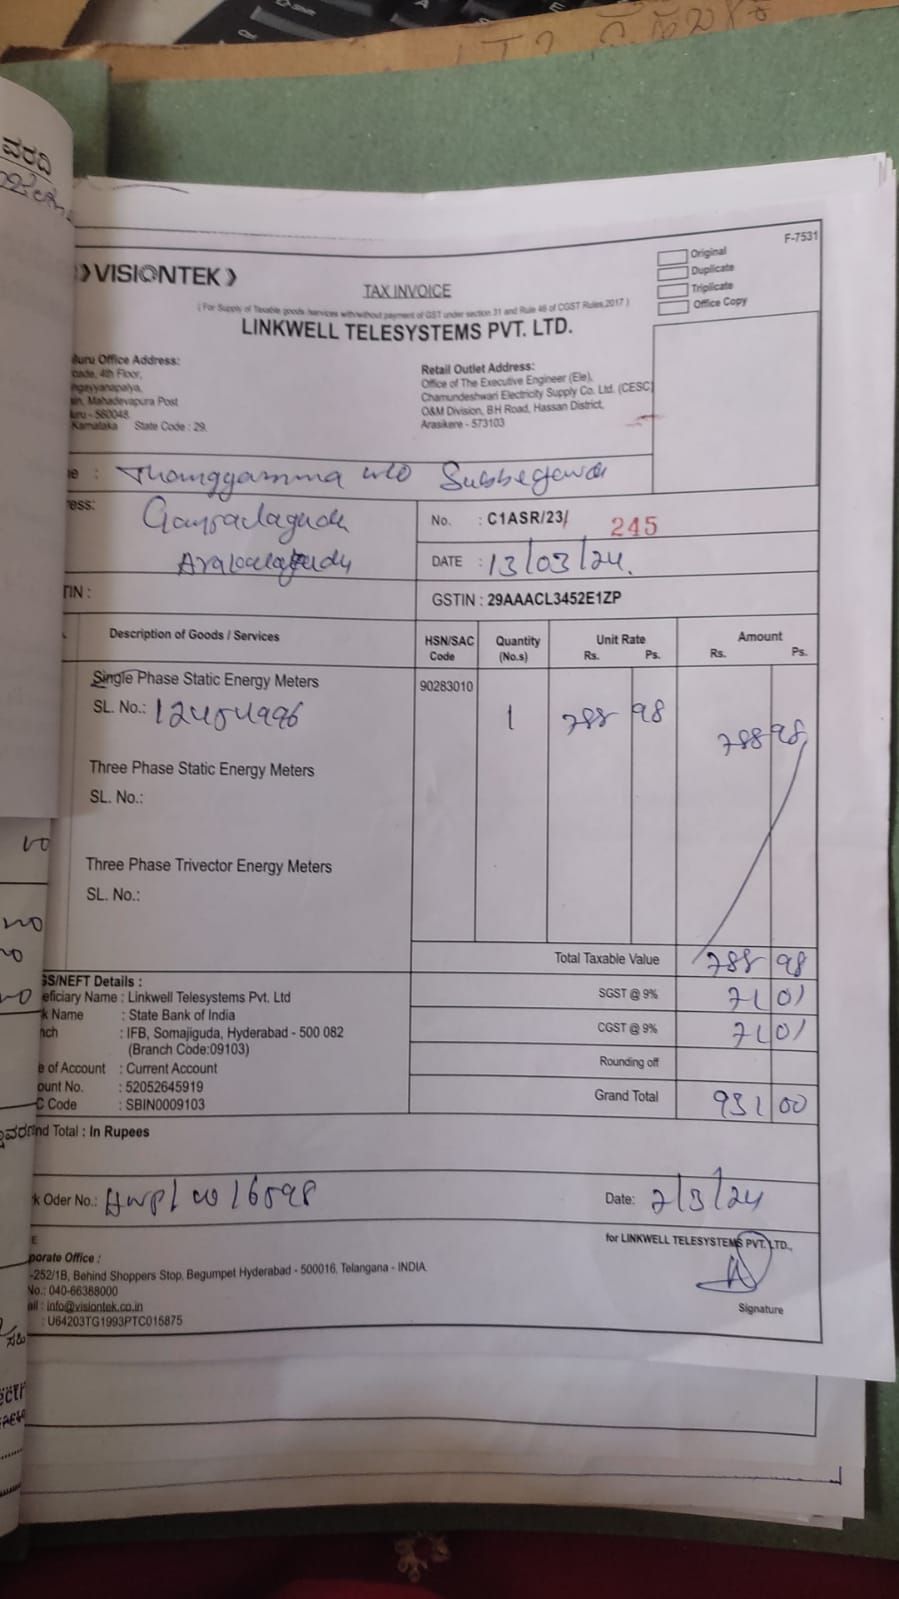 F-7531
Original
Duplicate
Triplicate
Office Copy
VISIONTEK
TAX INVOICE
( For Supply of Taxable goods /services with/without payment of GST under section 31 and Rule 46 of CGST Rules,2017 )
LINKWELL TELESYSTEMS PVT. LTD.
uru Office Address:
cade, 4th Floor,
ngayyanapalya,
in, Mahadevapura Post
uru - 560048.
Karnataka State Code : 29.
Retail Outlet Address:
Office of The Executive Engineer (Ele),
Chamundeshwari Electricity Supply Co. Ltd. (CESC)
O&M Division, BH Road, Hassan District,
Arasikere - 573103
e : Thanggamma w/o Subbegowda
ess:
No. : C1ASR/23/ 245
DATE : 13/03/24.
TIN :
GSTIN : 29AAACL3452E1ZP
Description of Goods / Services HSN/SAC Code Quantity (No.s) Unit Rate Rs. Ps. Amount Rs. Ps.
Single Phase Static Energy Meters 90283010
SL. No.: 1 788 98 788 98
Three Phase Static Energy Meters
SL. No.:
Three Phase Trivector Energy Meters
SL. No.:
Total Taxable Value 788 98
SGST @ 9% 71 01
CGST @ 9% 71 01
Rounding off
Grand Total 931 00
GS/NEFT Details :
eficiary Name : Linkwell Telesystems Pvt. Ltd
k Name : State Bank of India
nch : IFB, Somajiguda, Hyderabad - 500 082
(Branch Code:09103)
e of Account : Current Account
ount No. : 52052645919
C Code : SBIN0009103
nd Total : In Rupees
k Oder No.: Date: 7/3/24
for LINKWELL TELESYSTEMS PVT. LTD.,
E
porate Office :
-252/1B, Behind Shoppers Stop, Begumpet Hyderabad - 500016, Telangana - INDIA.
No.: 040-66388000
ail : info@visiontek.co.in
: U64203TG1993PTC015875
Signature